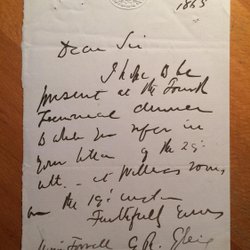 1865
Dear Sir
I hope to be
present at the Fourth
Triennial dinner
to which you refer in
your letter of the 29th
ult. - at Willis's rooms
on the 19th instant
Faithfully Yours
G. R. Gleig